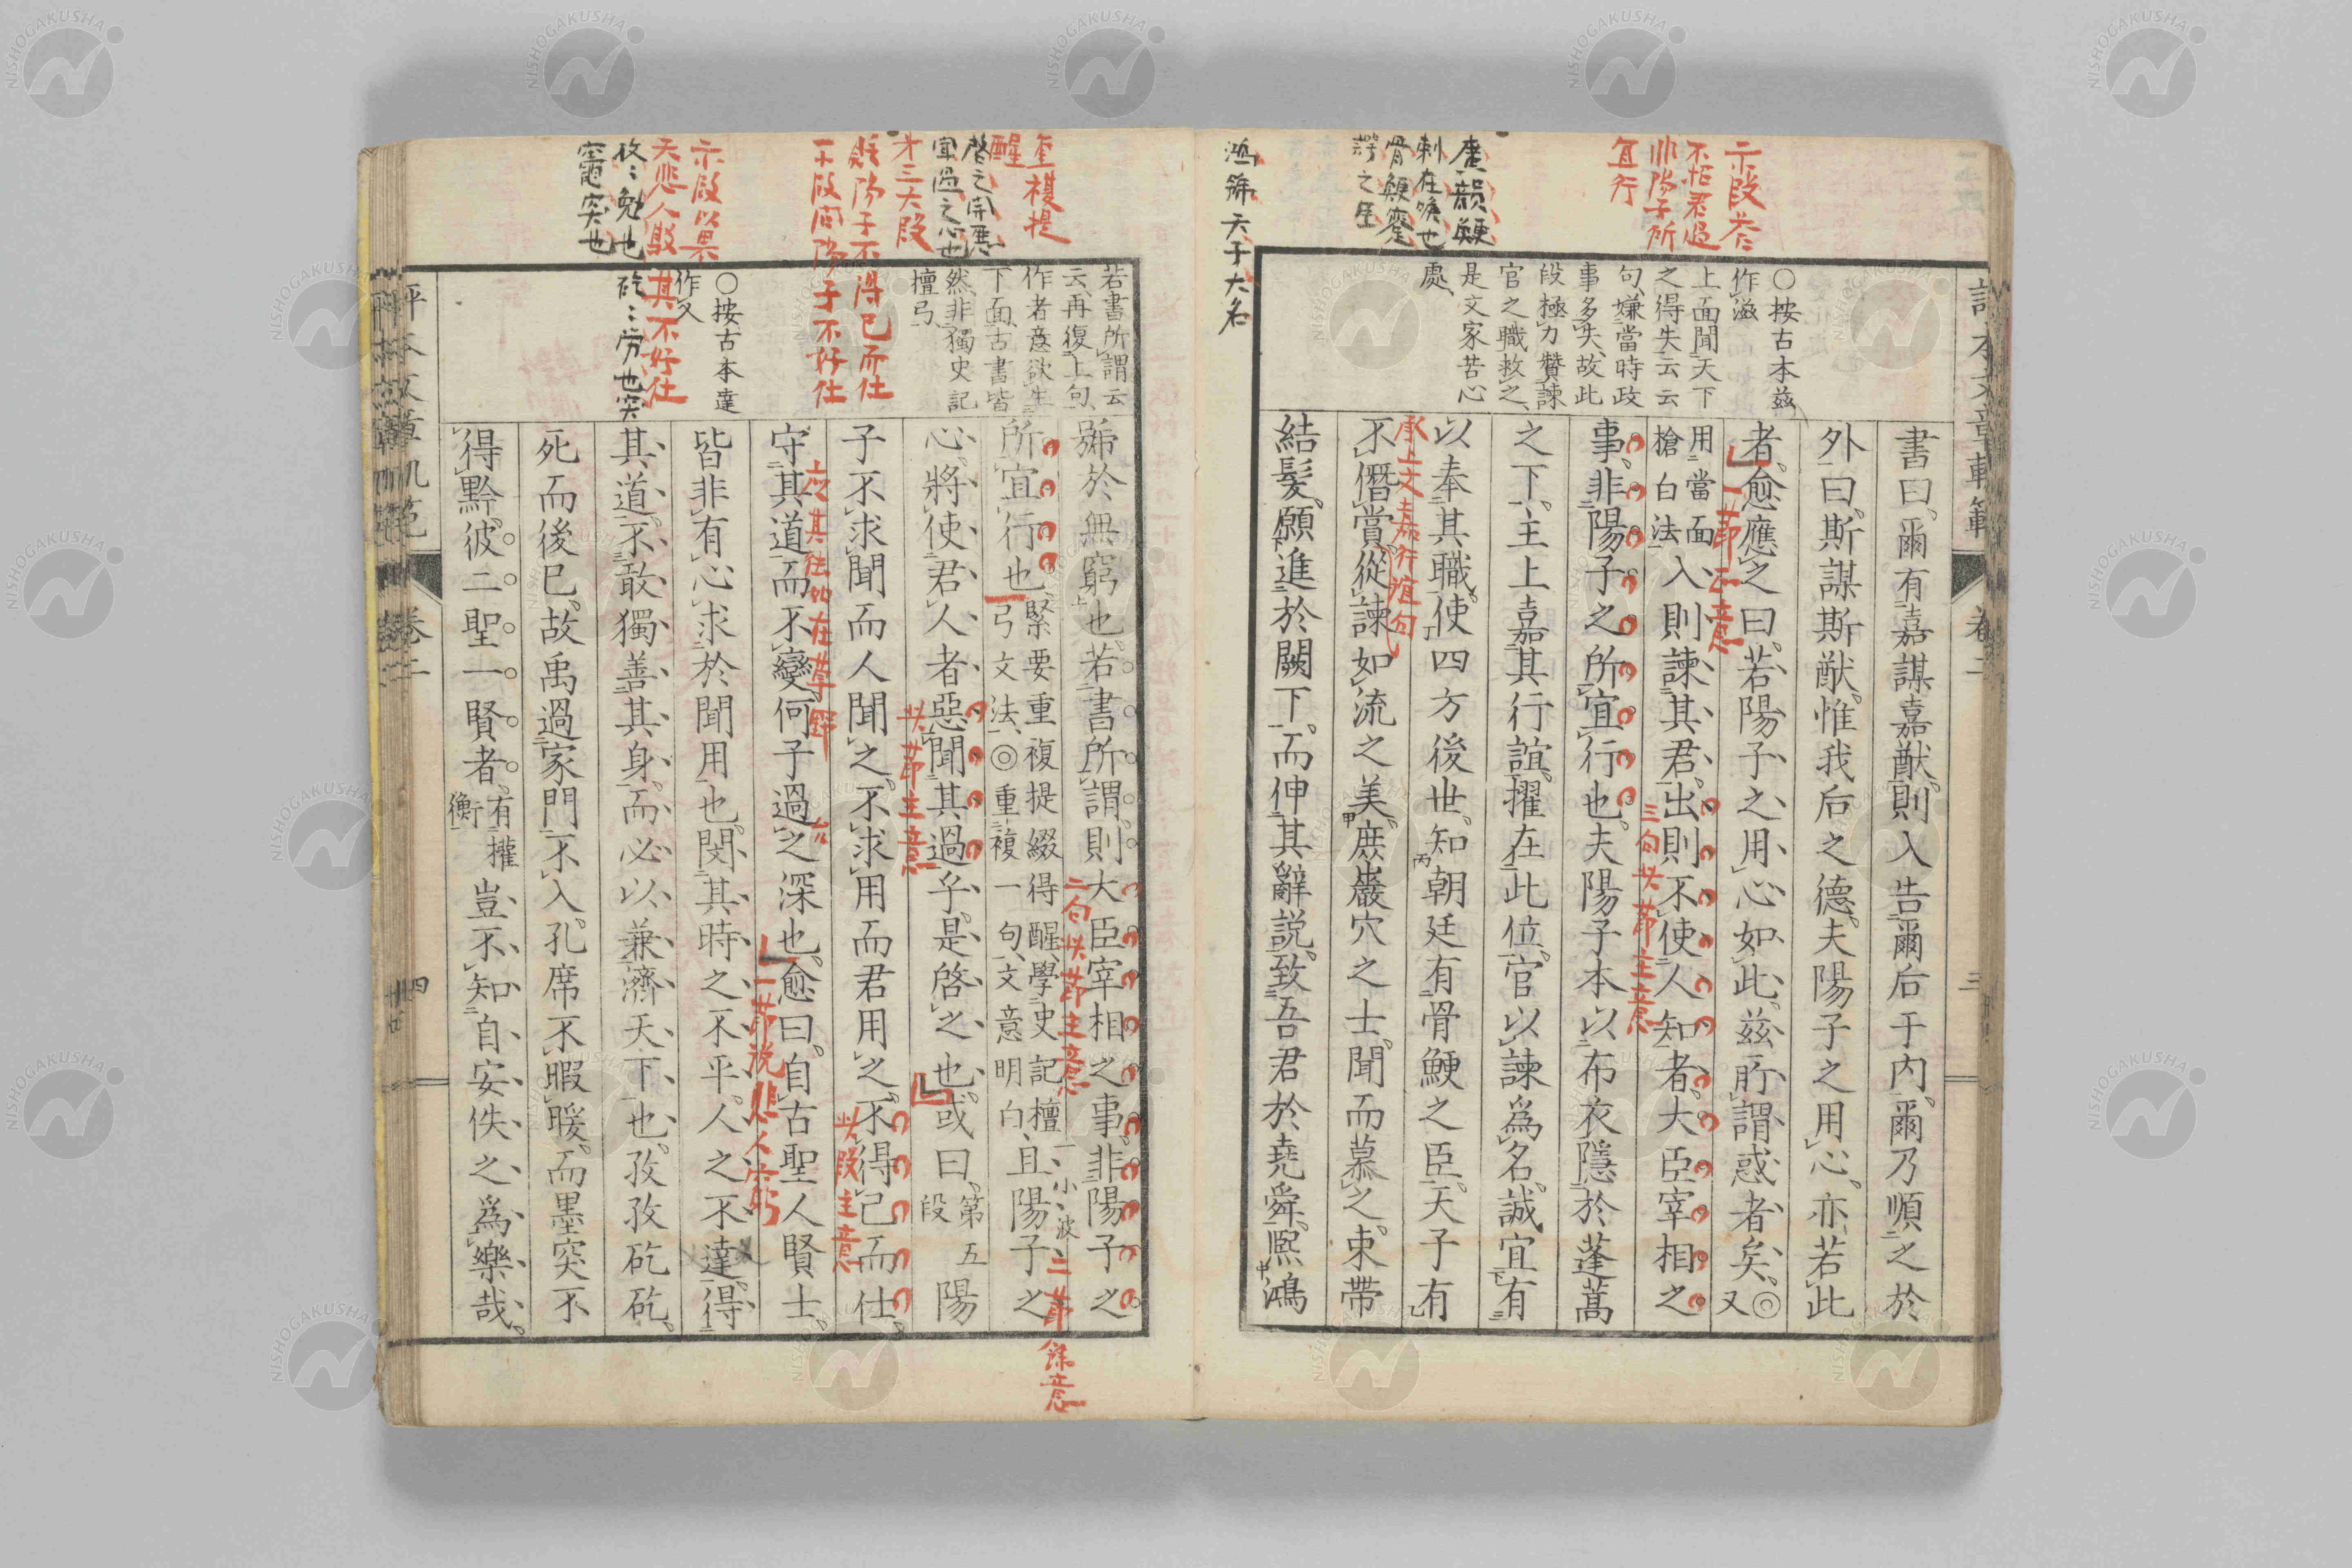 二段答
不怕君過
非陽子所
宜行
唐韻鯁
刺在喉也
骨鯁蹇
諤之臣
鴻號天子大名
○按古本茲
作滋
上面聞天下
之得失云云
句嫌當時政
事多失故此
段極力贊諫
官之職救之
是文家苦心
處
書曰爾有嘉謀嘉猷則入告爾后于内爾乃順之於
外曰斯謀斯猷惟我后之德夫陽子之用心亦若此
者愈應之曰若陽子之用心如此茲所謂惑者矣◎又
用當面
槍白法
入則諫其君出則不使人知者大臣宰相之
事非陽子之所宜行也夫陽子本以布衣隱於蓬蒿
之下主上嘉其行誼擢在此位官以諫爲名誠宜有
以奉其職使四方後世知朝廷有骨鯁之臣天子有
不僭賞從諫如流之美庶巖穴之士聞而慕之束帶
結髮願進於闕下而伸其辭説致吾君於堯舜熙鴻
一節正意
三句此節主意
承上文嘉行誼句
卷二
三
重複提
醒
啓之開其
君過之心也
才三大段
難陽子不得已而仕
一段問陽子不好仕
示段以畏
天悲人駁其不好仕
孜〻勉也矻〻労也突
竈突也
若書所謂云
云再復上句
作者意欲生
下面古書皆
然非獨史記
檀弓
○按古本達
作乂
號於無窮也若書所謂則大臣宰相之事非陽子之
所宜行也
緊要重複提綴得醒學史記檀
弓文法◎重複一句文意明白
且陽子之
心將使君人者惡聞其過乎是啓之也或曰
第五
段
陽
子不求聞而人聞之不求用而君用之不得已而仕
守其道而不變何子過之深也愈曰自古聖人賢士
皆非有心求於聞用也閔其時之不平人之不達得
其道不敢獨善其身而必以兼濟天下也孜孜矻矻
死而後已故禹過家門不入孔席不暇暖而墨突不
得黔彼二聖一賢者
有權
衡
豈不知自安佚之爲樂哉
二句此節主意
一小波
二節餘意
此節主意
此段主意
一節説悲人亦窮
卷二
四